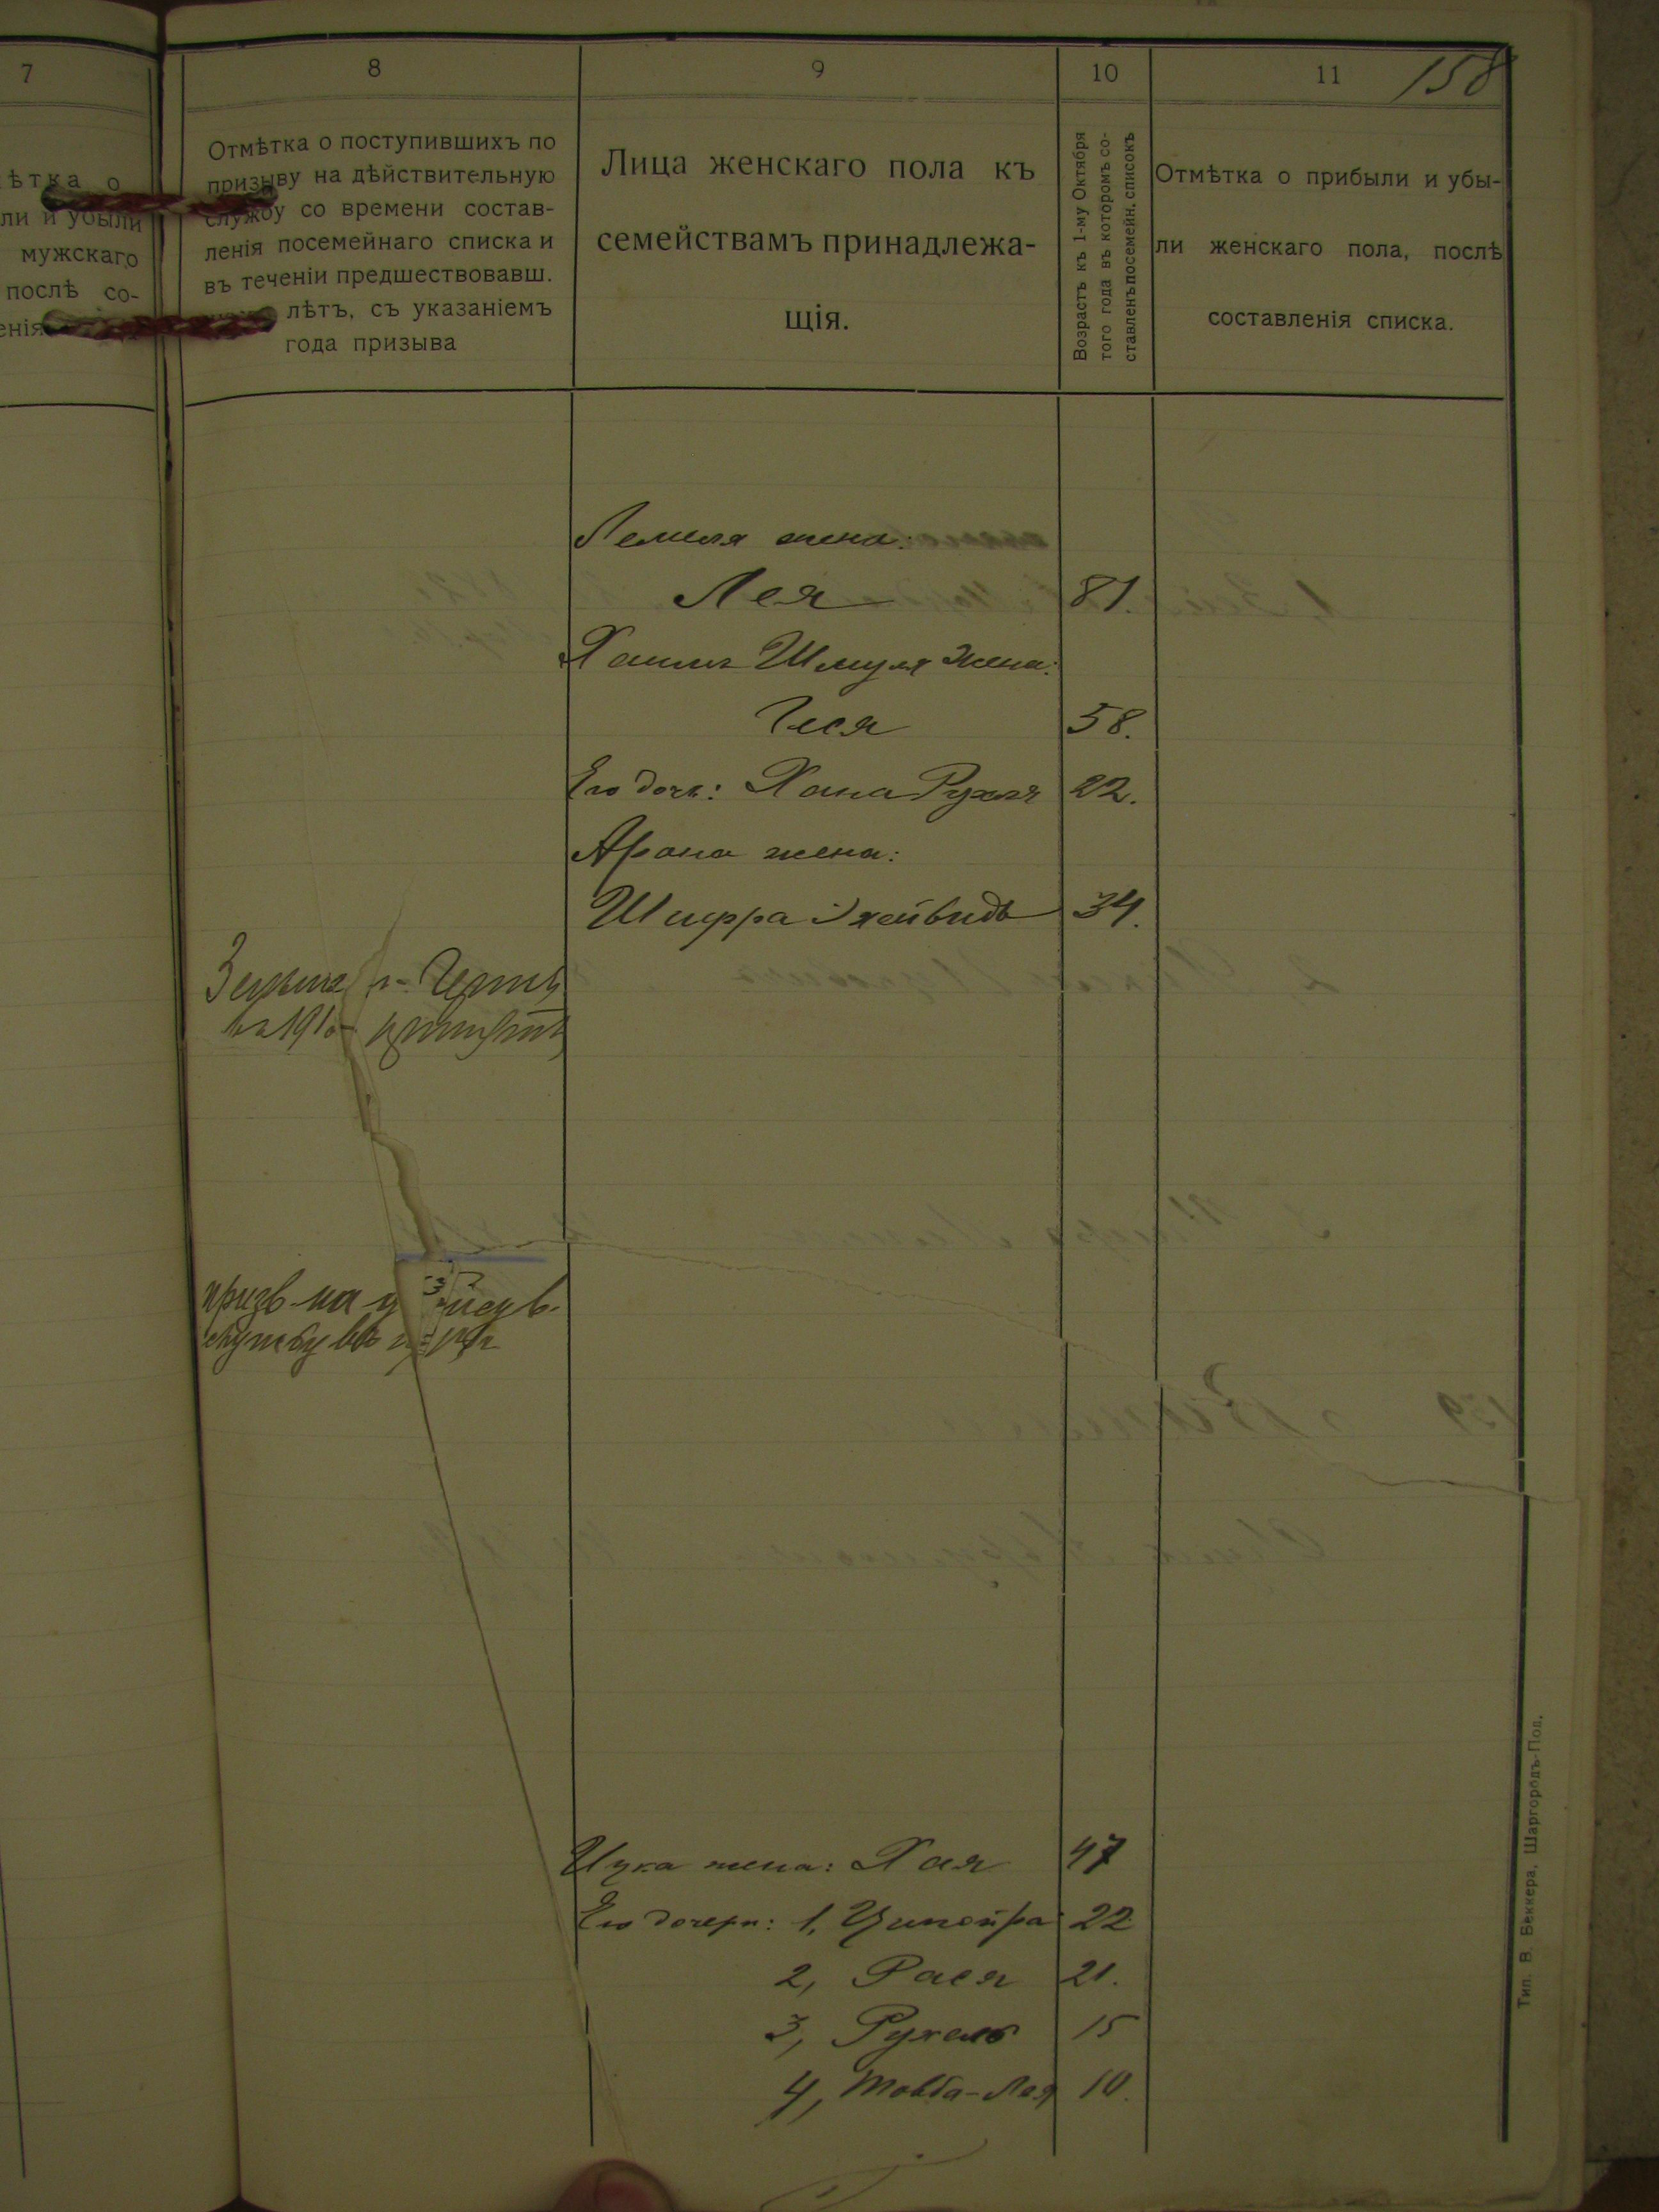 7
ѣтка о
ли и убыли
мужскаго
послѣ со-
енія
8
Отмѣтка о поступившихъ по
призыву на дѣйствительную
службу со времени состав-
ленія посемейнаго списка и
въ теченіи предшествовавш.
лѣтъ, съ указаніемъ
года призыва
9
Лица женскаго пола къ
семействамъ принадлежа-
щія.
10
Возрастъ къ 1-му Октября
того года въ которомъ со-
ставленъ посемейн. списокъ
11
158
Отмѣтка о прибыли и убы-
ли женскаго пола, послѣ
составленія списка.
жена:
Лея 81.
Шмуля жена:
58.
Его дочь: Хана Рухля 22.
Арона жена:
Шифра 34.
въ 1910
призв. на
службу въ
Ицка жена: Хая 47
Его дочери: 1, Ципойра 22
2, Рася 21.
3, Рухель 15
4, Товба-Лея 10.
Тип. В. Беккера, Шаргородъ-Под.